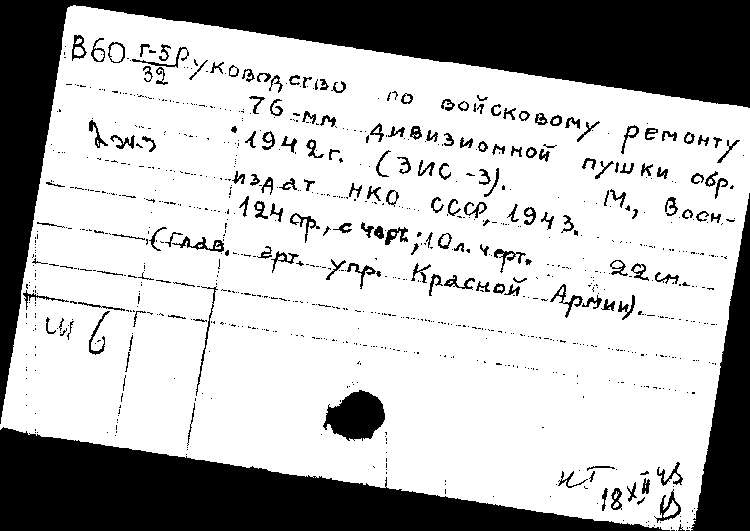 В60 Г-5 Руководство по войсковому ремонту
32
76-мм дивизионной пушки обр.
2 экз
1942г. (ЗИС-3). М., Воен-
издат НКО СССР, 1943.
124 стр., с черт.; 10 л. черт. 22 см.
(Глав. арт. упр. Красной Армии).
ш 6
18 XII 43